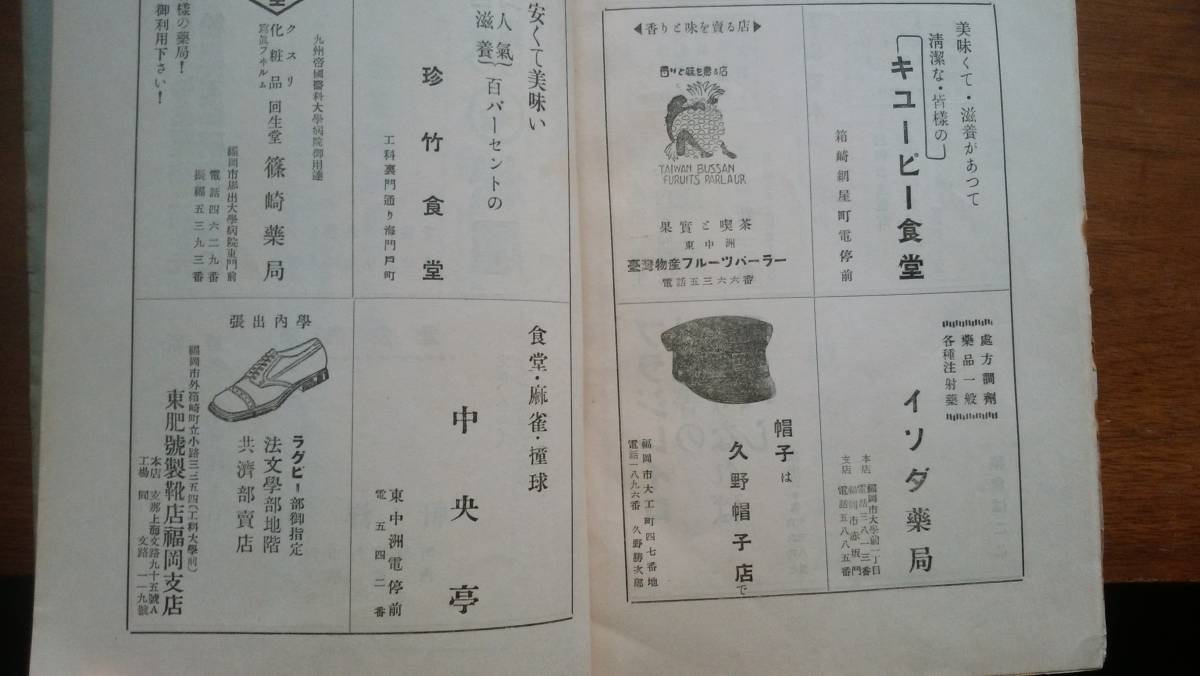 美味くて・滋養があつて
清潔な・皆様の
キユーピー食堂
箱崎網屋町電停前
◀香りと味を賣る店▶
香りと味を売る店
TAIWAN BUSSAN
FURUITS PARLAUR
果實と喫茶
東中洲
臺灣物産フルーツパーラー
電話五三六六番
處方調劑
藥品一般
各種注射藥
イソダ藥局
本店 福岡市大學前一丁目
電話三八一三番
支店 福岡市赤坂門
電話五八八五番
帽子は
久野帽子店で
福岡市大工町四七番地
電話一八九六番 久野勝次郎
安くて美味い
人氣
滋養
百パーセントの
珍竹食堂
工科裏門通り海門戸町
九州帝國醫科大學病院御用達
クスリ
化粧品
寫眞フヰルム
回生堂 篠崎藥局
福岡市堅出大學病院東門前
電話四六二九番
振福五三九三番
様の藥局!
御利用下さい!
食堂・麻雀・撞球
中央亭
東中洲電停前
電 五四二番
學內出張
ラグビー部御指定
法文學部地階
共濟部賣店
福岡市外箱崎町立小路三三五四(工科大學前)
東肥號製靴店福岡支店
本店 支那上海文路九十五號A
工場 同 文路一一九號